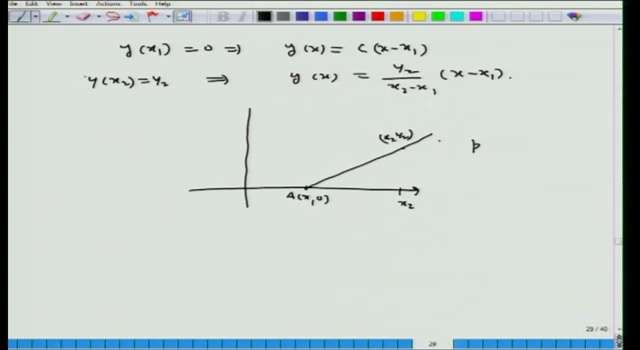 File Edit View Insert Actions Tools Help
y(x₁) = 0 ⇒ y(x) = C(x-x₁)
y(x₂) = y₂ ⇒ y(x) = y₂/(x₂-x₁) (x-x₁).
(x₂,y₂)
A(x₁,0)
x₂
29 / 40
29